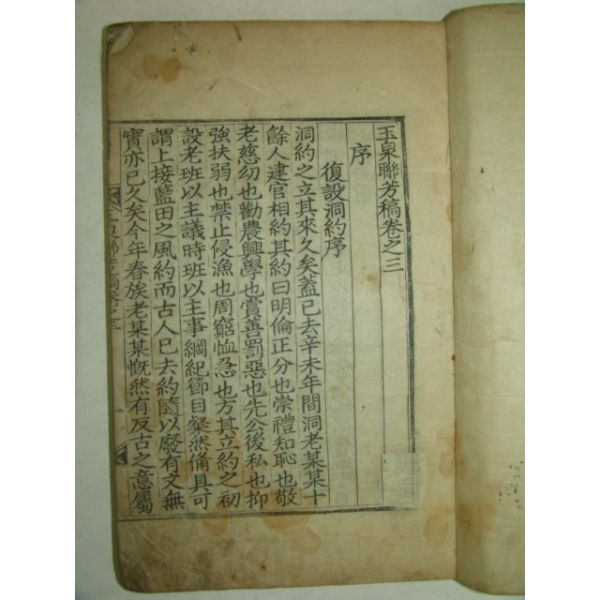 玉泉聯芳稿卷之三
序
復設洞約序
洞約之立其來久矣蓋已去辛未年間洞老某某十
餘人建官相約其約曰明倫正分也崇禮知恥也敬
老慈幼也勸農興學也賞善罰惡也先公後私也抑
強扶弱也禁止侵漁也周窮恤急也方其立約之初
設老班以主議時班以主事綱紀節目粲然備具可
謂上接藍田之風約而古人已去約隨以廢有文無
實亦已久矣今年春族老某某慨然有反古之意屬
玉泉聯芳稿卷之三